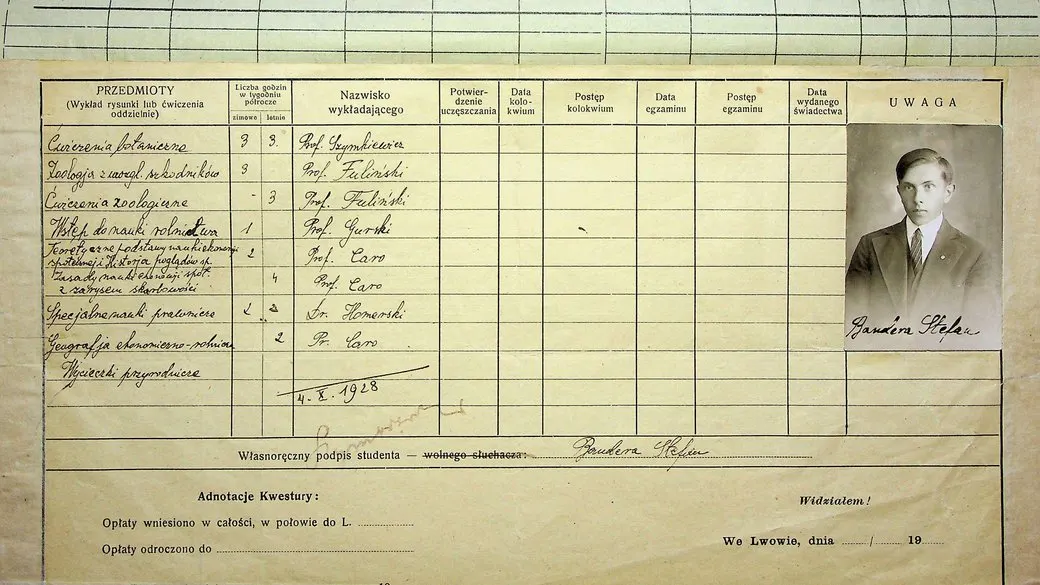 PRZEDMIOTY
(Wykład rysunki lub ćwiczenia
oddzielnie)
Liczba godzin
w tygodniu
półrocze
zimowe letnie
Nazwisko
wykładającego
Potwier-
dzenie
uczęszczania
Data
kolo-
kwium
Postęp
kolokwium
Data
egzaminu
Postęp
egzaminu
Data
wydanego
świadectwa
UWAGA
Ćwiczenia botaniczne 3 3. Prof. Szymkiewicz
Zoologja z uwzgl. szkodników 3 Prof. Fuliński
Ćwiczenia zoologiczne - 3 Prof. Fuliński
Wstęp do nauki rolnictwa 1 Prof. Gurski
Teoretyczne podstawy nauki ekonomji
społecznej i Historja poglądów sp. 2 Prof. Caro
Zasady nauki ekonomji społ.
z zarysem skarbowości 4 Prof. Caro
Specjalne nauki prawnicze 2 2 Dr. Homerski
Geografja ekonomiczno-rolnicza 2 Pr. Caro
Wycieczki przyrodnicze
4. X. 1928
Bandera Stefan
Własnoręczny podpis studenta — wolnego słuchacza: Bandera Stefan
Adnotacje Kwestury:
Opłaty wniesiono w całości, w połowie do L.
Opłaty odroczono do
Widziałem!
We Lwowie, dnia / 19